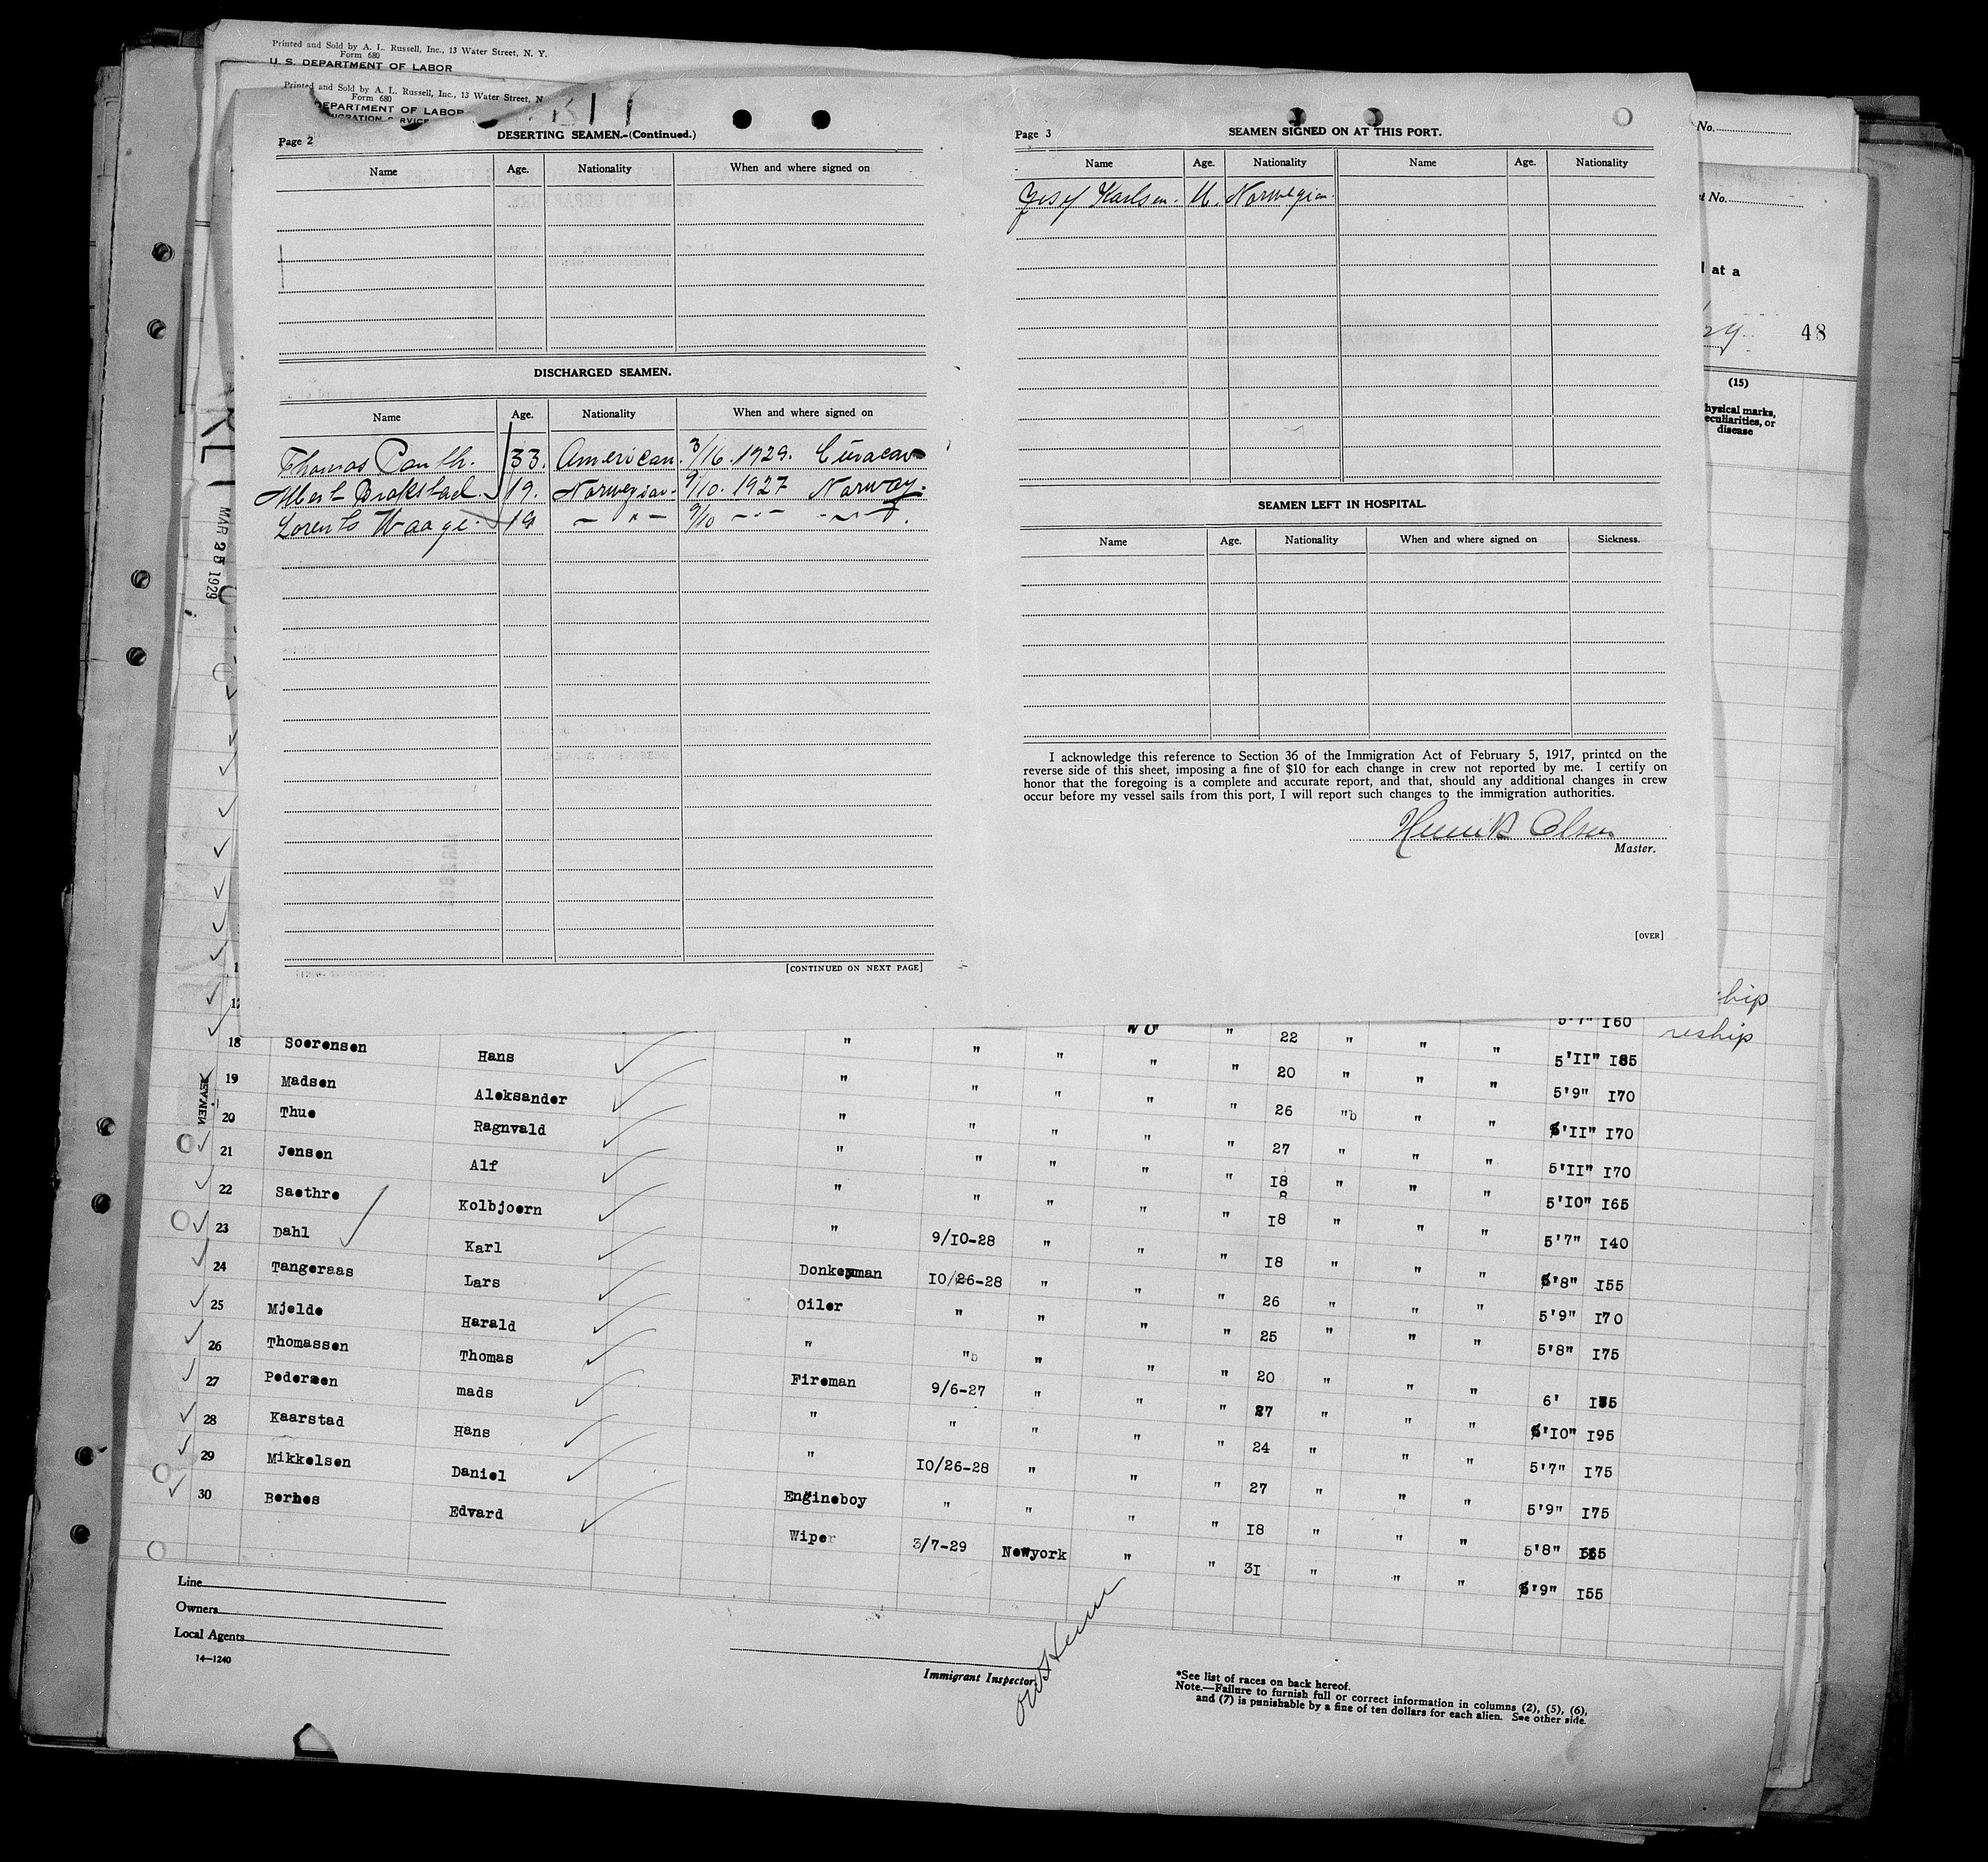 Printed and Sold by A. L. Russell, Inc., 13 Water Street, N. Y.
Form 680
U. S. DEPARTMENT OF LABOR
Printed and Sold by A. L. Russell, Inc., 13 Water Street, N
Form 680
DEPARTMENT OF LABOR
Page 2
DESERTING SEAMEN.-(Continued.)
Name Age. Nationality When and where signed on
DISCHARGED SEAMEN.
Name Age. Nationality When and where signed on
Thomas 33. American. 3/16.1929. Curacao
Albert Brokstad. 19. Norwegian. 9/10.1927 Norway.
Lorents Waage. 19 — " — 9/10 — " — — " —.
[CONTINUED ON NEXT PAGE]
Page 3
SEAMEN SIGNED ON AT THIS PORT.
Name Age. Nationality Name Age. Nationality
Josef Karlsen. Norwegian.
SEAMEN LEFT IN HOSPITAL.
Name Age. Nationality When and where signed on Sickness.
I acknowledge this reference to Section 36 of the Immigration Act of February 5, 1917, printed on the
reverse side of this sheet, imposing a fine of $10 for each change in crew not reported by me. I certify on
honor that the foregoing is a complete and accurate report, and that, should any additional changes in crew
occur before my vessel sails from this port, I will report such changes to the immigration authorities.
Henrik Olsen
Master.
[OVER]
No.
No.
at a
48
(15)
hysical marks,
eculiarities, or
disease
MAR 25 1929
hip
5'7" 160
reship
18 Soerensen Hans " " " " " 22 " " " 5'11" 185
19 Madsen Aleksander " " " " " 20 " " " 5'9" 170
20 Thue Ragnvald " " " " " 26 " " " 5'11" 170
21 Jensen Alf " " " " " 27 " " " 5'11" 170
22 Saethre Kolbjoern " " " " " 18 " " " 5'10" 165
23 Dahl Karl " 9/10-28 " " " 18 " " " 5'7" 140
24 Tangeraas Lars Donkeyman 10/26-28 " " " 18 " " " 5'8" 155
25 Mjelde Harald Oiler " " " " 26 " " " 5'9" 170
26 Thomassen Thomas " " " " " 25 " " " 5'8" 175
27 Pedersen mads Fireman 9/6-27 " " " 20 " " " 6'
28 Kaarstad Hans " " " " " 27 " " " 5'10" 195
29 Mikkelsen Daniel " 10/26-28 " " " 24 " " " 5'7" 175
30 Bernes Edvard Engineboy " " " " 27 " " " 5'9" 175
" 18 " " " 5'8"
Wiper 3/7-29 Newyork " " 31 " " " 5'9" 155
Line
Owners
Local Agents
14—1240
Immigrant Inspector.
*See list of races on back hereof.
Note.—Failure to furnish full or correct information in columns (2), (5), (6),
and (7) is punishable by a fine of ten dollars for each alien. See other side.